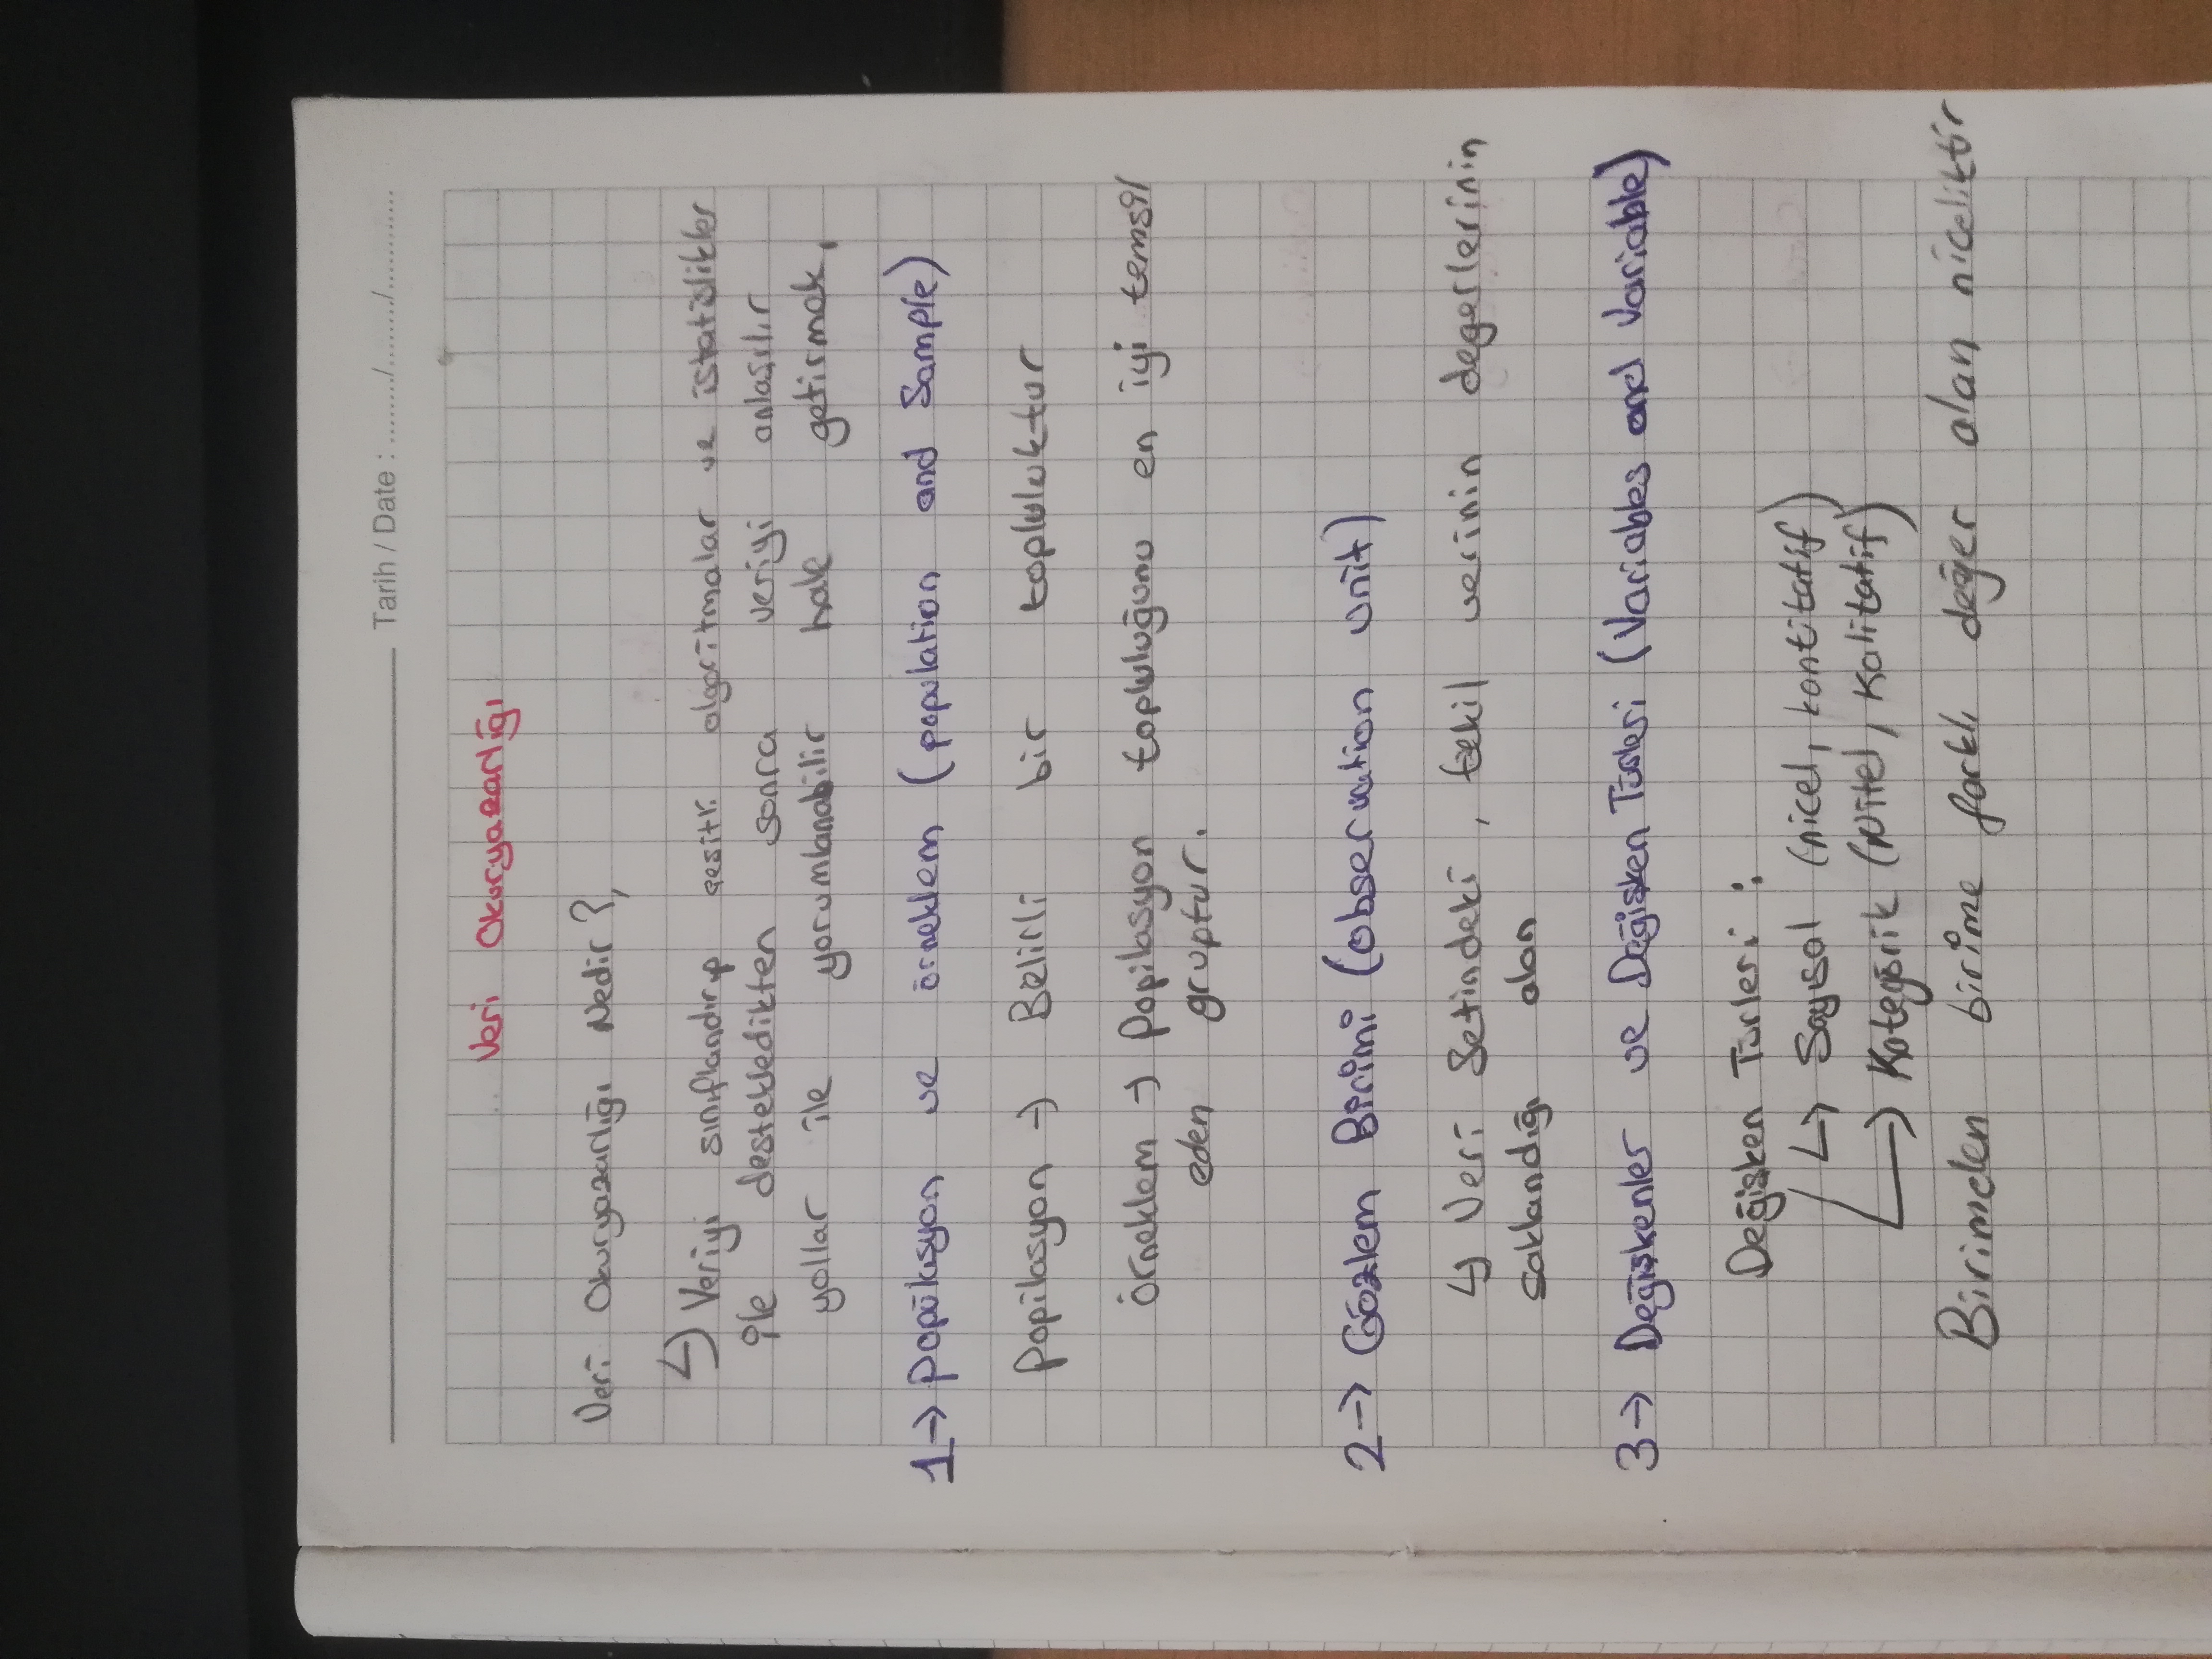 Tarih / Date : ......./......./..........
Veri Okuryazarlığı
Veri Okuryazarlığı Nedir?,
↳ Veriyi sınıflandırıp çesitr. algoritmalar ve istatislikler
ile destekledikten sonra veriyi anlasılır
yollar ile yorumlanabilir hale getirmek,
1→ popülasyon ve örneklem (population and Sample)
Popilasyon → Belirli bir topluluktur
örneklem → Popilasyon topluluğunu en iyi temsil
eden gruptur.
2→ Gözlem Birimi (observation unit)
↳ Veri Setindeki, tekil verinin degerlerinin
saklandığı alan
3→ Değişkenler ve Değişken Türleri (Variables and Variable)
Değişken Türleri :
↳ Sayısal (nicel, kontitatif)
↳ Kategorik (nitel, Kalitatif)
Birimden birime farklı değer alan niceliktir